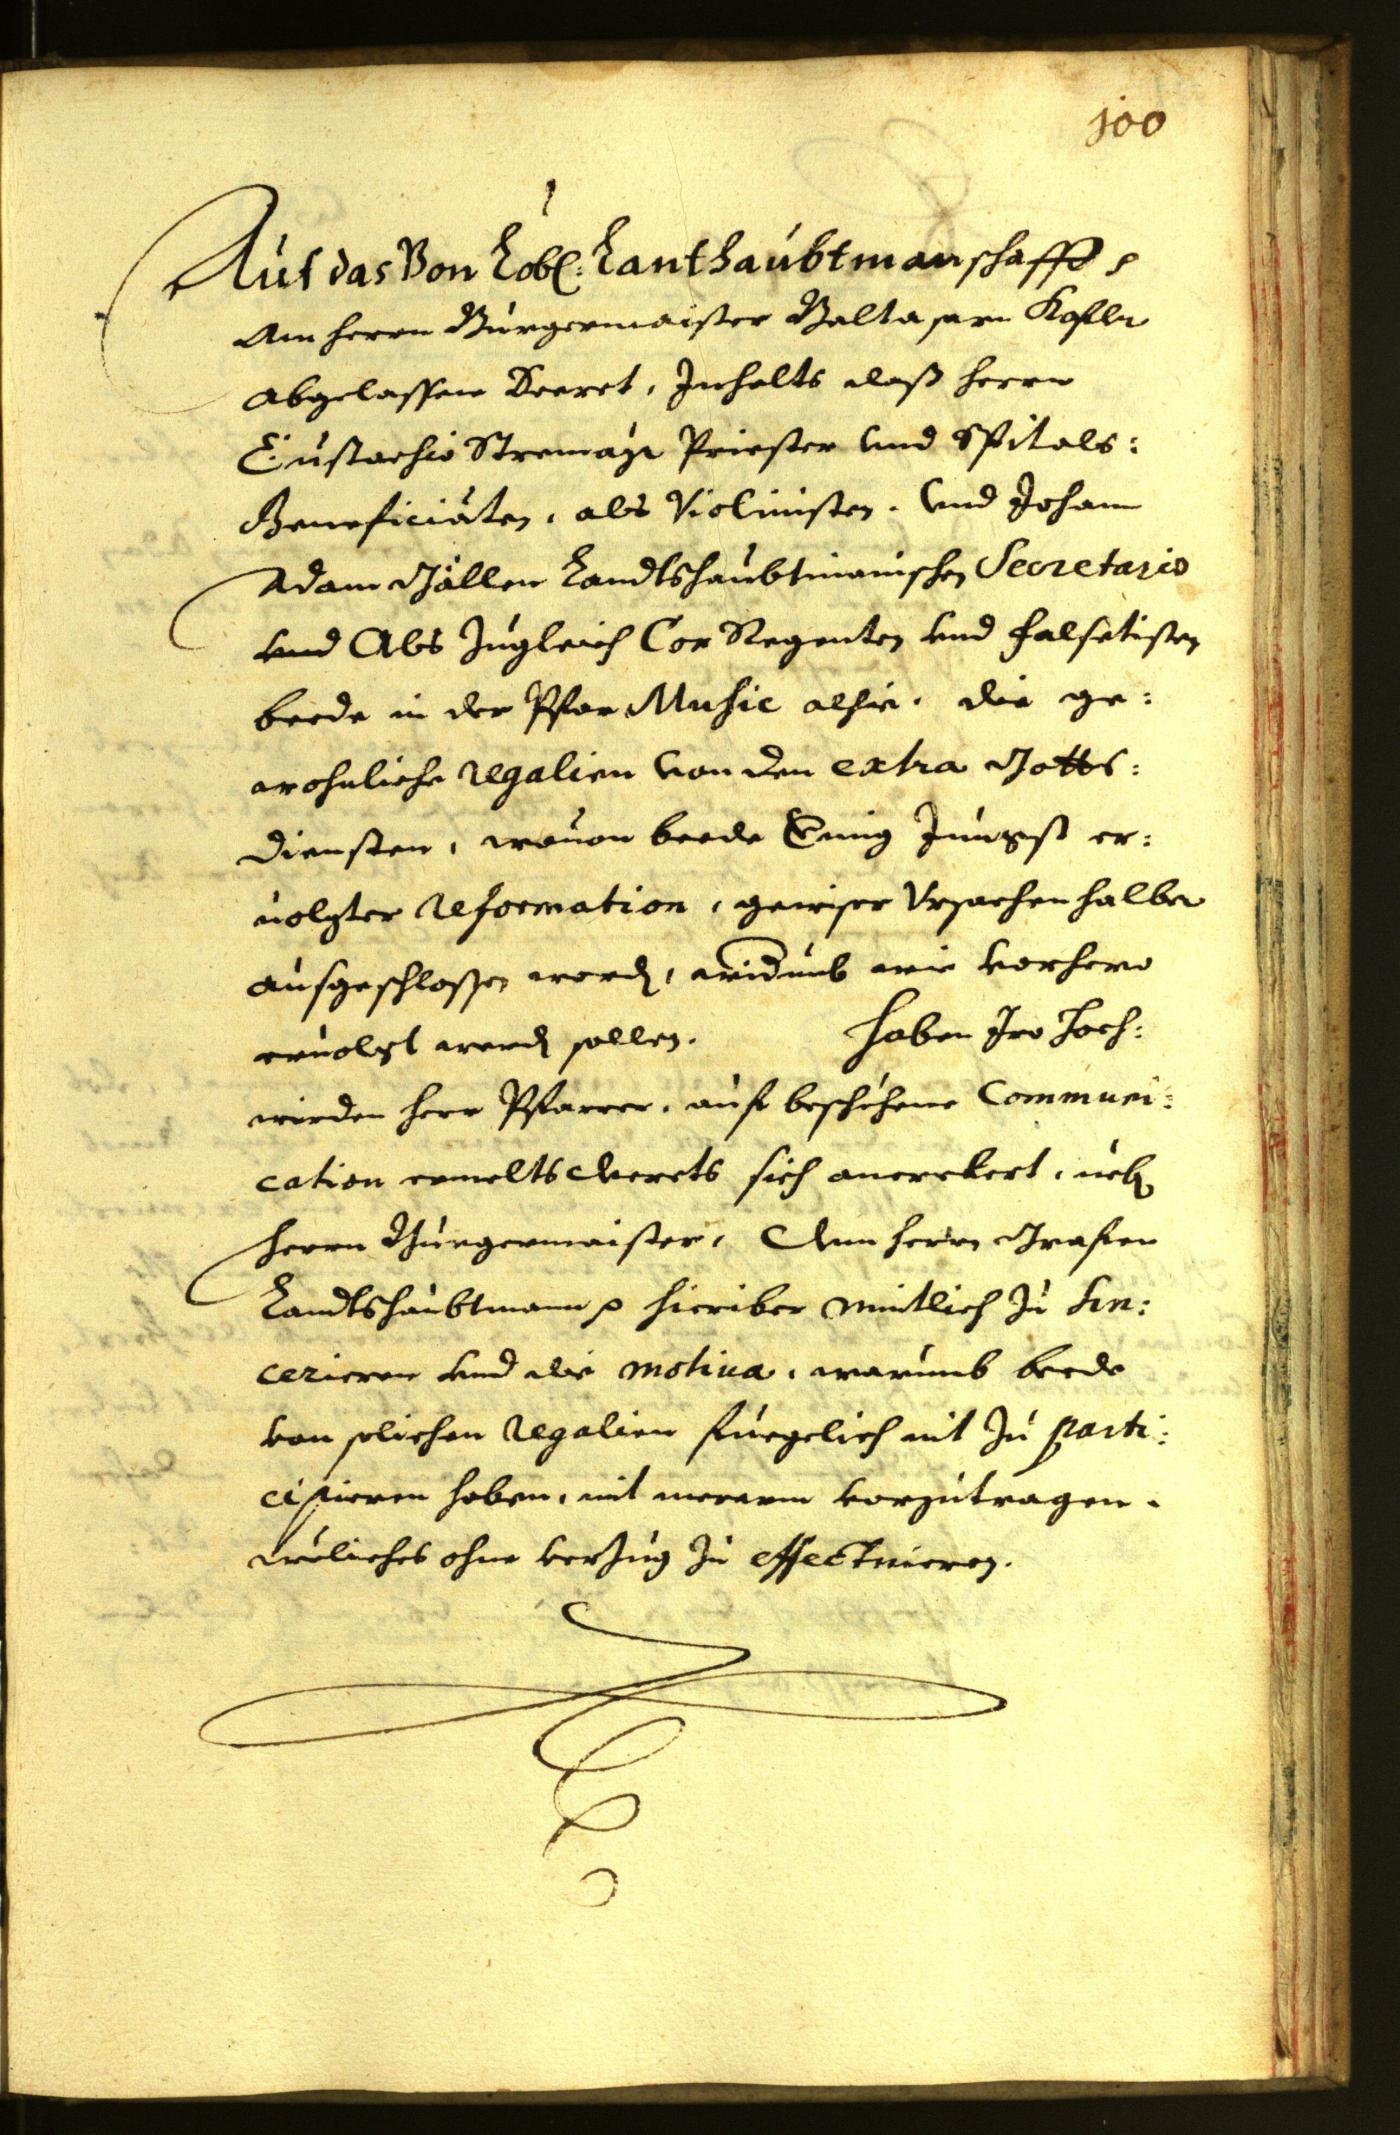 100
Auf das Von Löbl: Lanthaubtmanschafft p
Am herrn Burgermaister Baltasarn Kofler
abgelassen Decret, Inhalts daß herrn
Eustachio Stremayr Priester vnd Spitals:
Beneficiaten, als Violinisten. vnd Johann
Adam Göllen Landtshaubtmanischen Secretario
vnd Als Zugleich Cor Regenten vnd falsetisten
beede in der Pfar Music alhie. die ge:
wohnliche regalien von den extra Gotts:
diensten, wouon beede Jüngst er:
uolgter reformation, gewiser Vrsachen halber
ausgeschlossen word, widumb wie vorhero
eruolgt werd sollen. haben Iro Hoch:
wirden herr Pfarrer, auf beschehene Communi:
cation ermelts decrets sich anerclert, neb
herrn Burgermaister, dem herrn Grafen
Landtshaubtmann p hieriber mintlich zu sin:
cerieren vnd die motiua, warumb beede
von solichen regalien fuegelich nit zu parti:
cipieren haben, mit mererm vorzutragen.
weliches ohne verzug zu effectuieren.